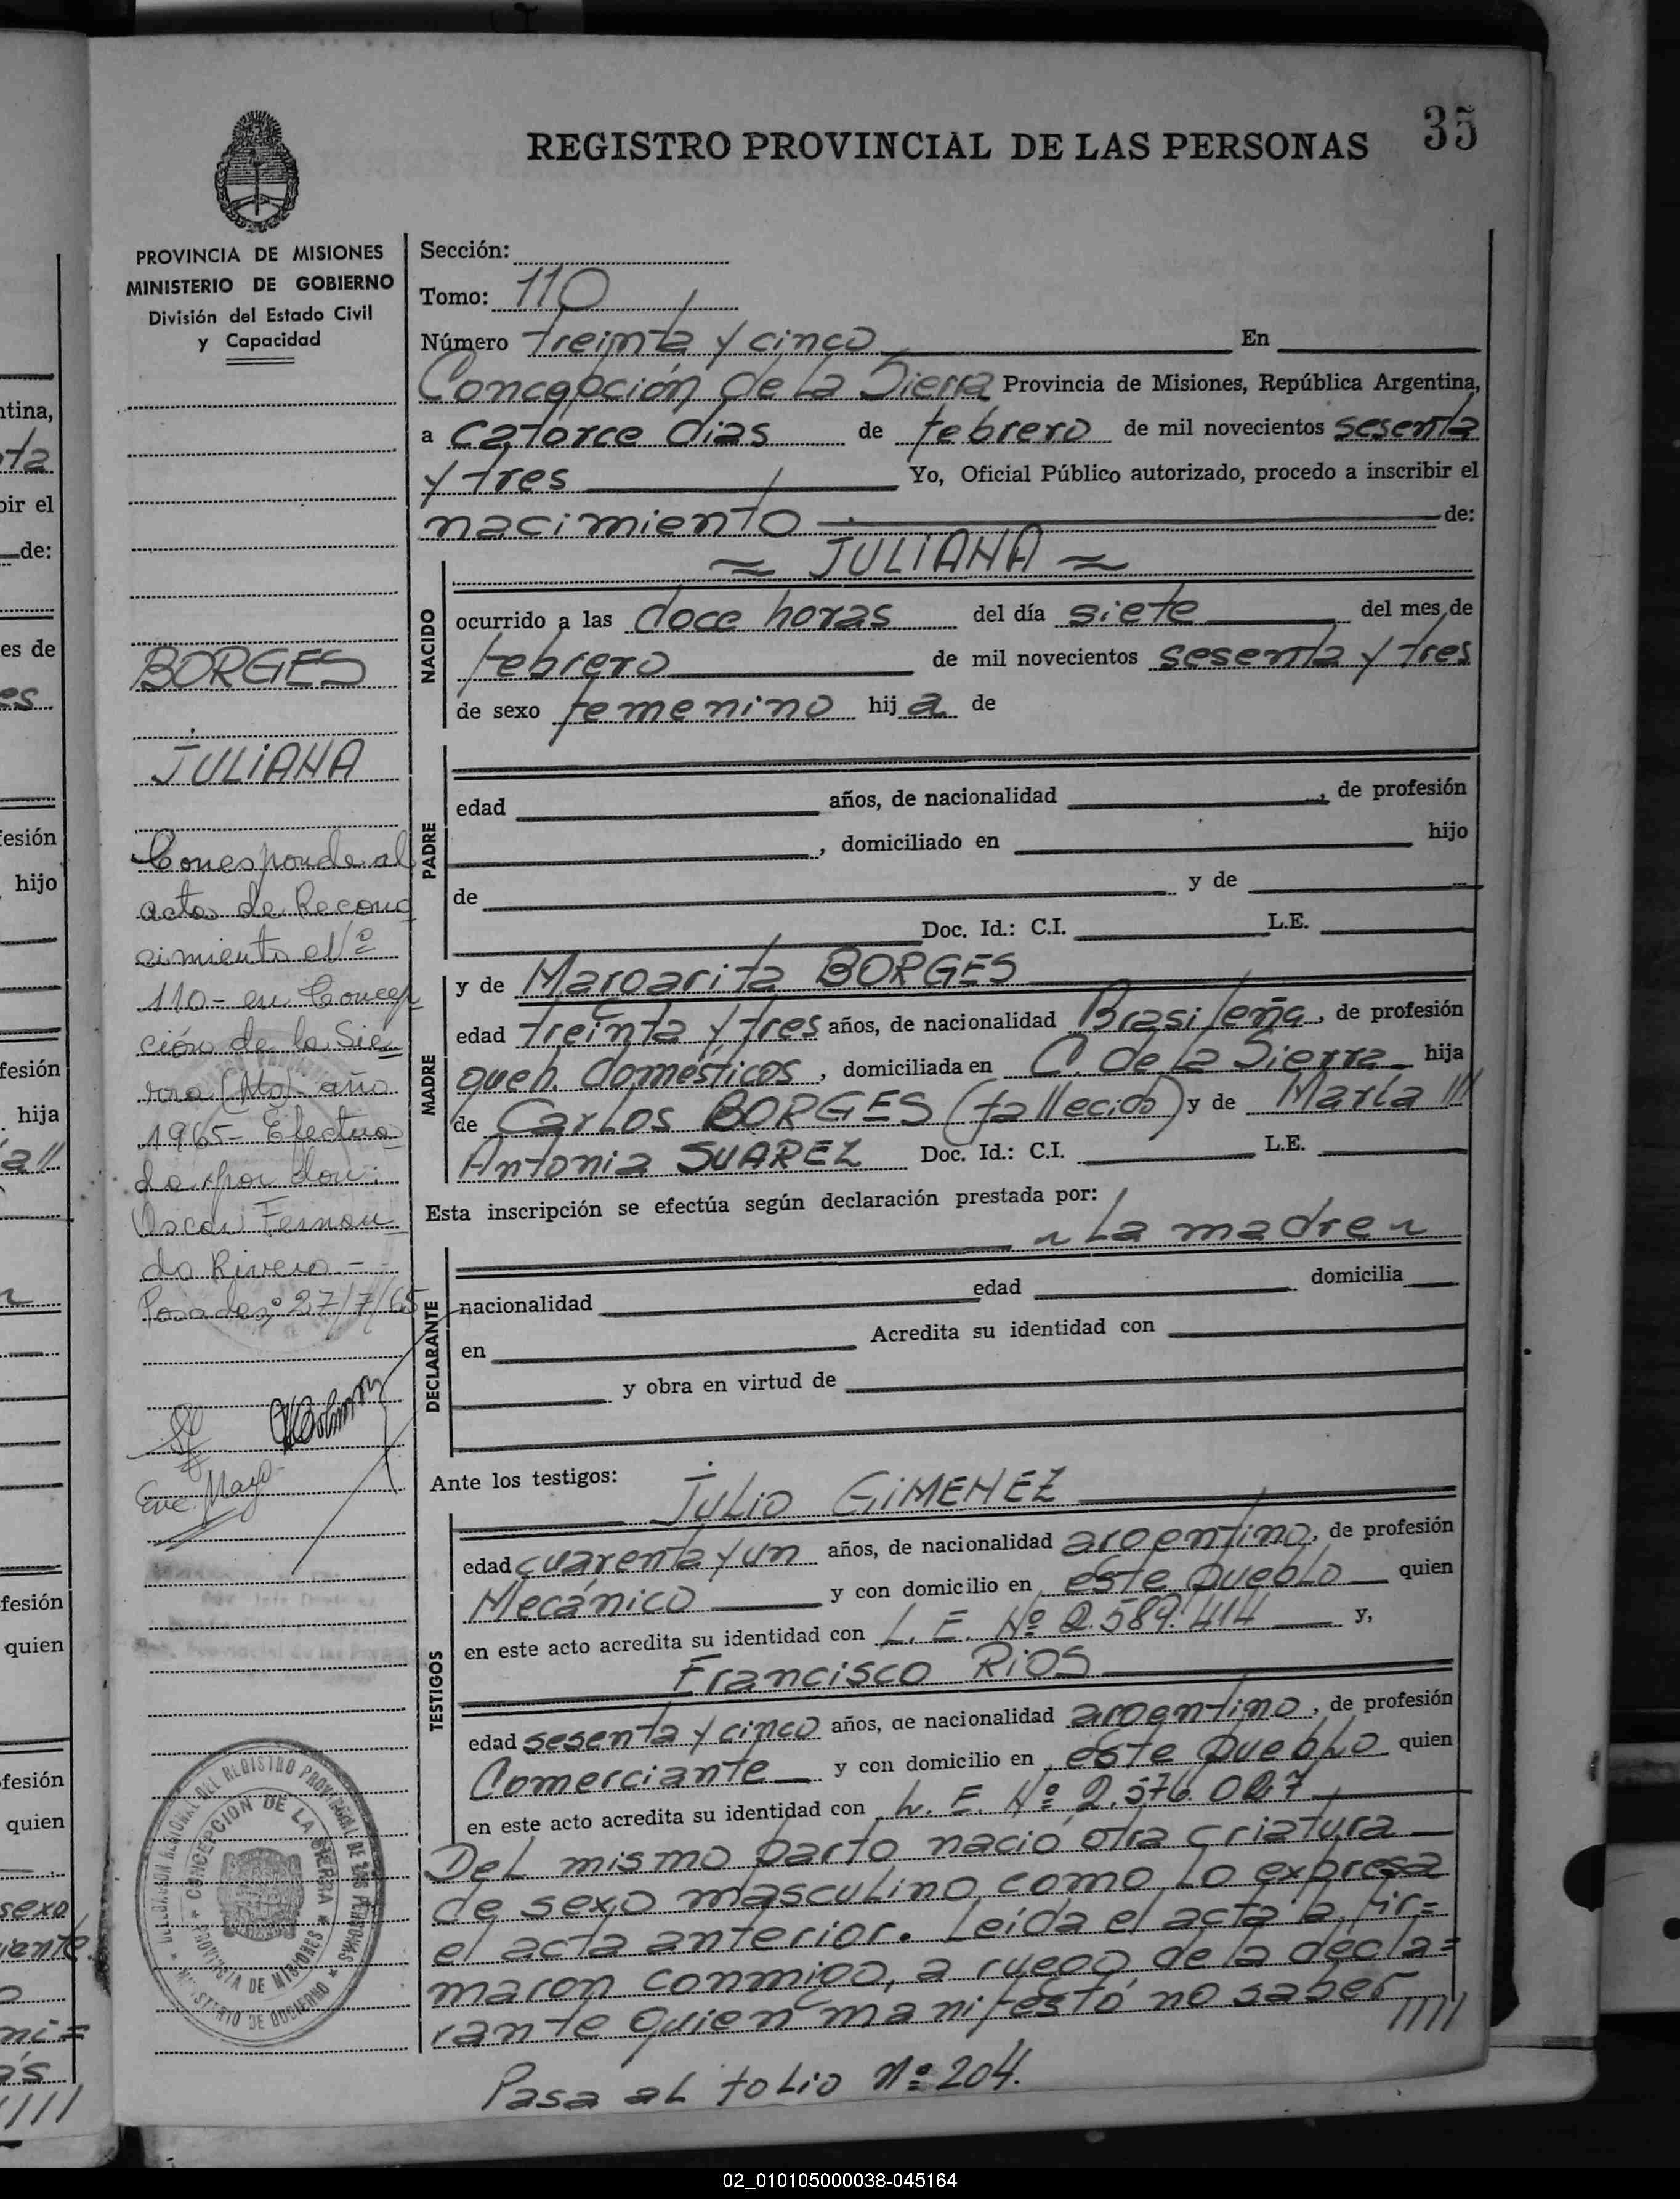 35
REGISTRO PROVINCIAL DE LAS PERSONAS
PROVINCIA DE MISIONES
MINISTERIO DE GOBIERNO
División del Estado Civil
y Capacidad
BORGES
JULIANA
Corresponde al
acta de Recono
cimiento Nº
110- en Concep
ción de la Sie
rra (Ms) año
1965- Efectua
da por don:
Oscar Fernan
do Rivero -
Posadas, 27/7/65
Sección:
Tomo: 110
Número treinta y cinco En
Concepción de la Sierra Provincia de Misiones, República Argentina,
a catorce dias de febrero de mil novecientos sesenta
y tres Yo, Oficial Público autorizado, procedo a inscribir el
nacimiento de:
JULIANA
NACIDO
ocurrido a las doce horas del día siete del mes de
febrero de mil novecientos sesenta y tres
de sexo femenino hija de
PADRE
edad años, de nacionalidad , de profesión
, domiciliado en hijo
de y de
Doc. Id.: C.I. L.E.
MADRE
y de Margarita BORGES
edad treinta y tres años, de nacionalidad Brasileña, de profesión
queh. domésticos, domiciliada en C. de la Sierra hija
de Carlos BORGES (fallecido) y de María ///
Antonia SUAREZ Doc. Id.: C.I. L.E.
Esta inscripción se efectúa según declaración prestada por:
La madre
DECLARANTE
nacionalidad edad domicilia
en Acredita su identidad con
y obra en virtud de
Ante los testigos: Julio GIMENEZ
TESTIGOS
edad cuarenta y un años, de nacionalidad argentino, de profesión
Mecánico y con domicilio en este pueblo quien
en este acto acredita su identidad con L. E. Nº 2.589.414 y,
Francisco RIOS
edad sesenta y cinco años, de nacionalidad argentino, de profesión
Comerciante y con domicilio en este pueblo quien
en este acto acredita su identidad con L. E. Nº 2.576.027
Del mismo parto nació otra criatura
de sexo masculino como lo expresa
el acta anterior. Leída el acta la fir=
maron conmigo, a ruego de la decla=
rante quien manifestó no saber /////
Pasa al folio Nº 204.
DELEGACION REGIONAL DEL REGISTRO PROVINCIAL DE LAS PERSONAS
CONCEPCION DE LA SIERRA
PROVINCIA DE MISIONES
MINISTERIO DE GOBIERNO
02_010105000038-045164